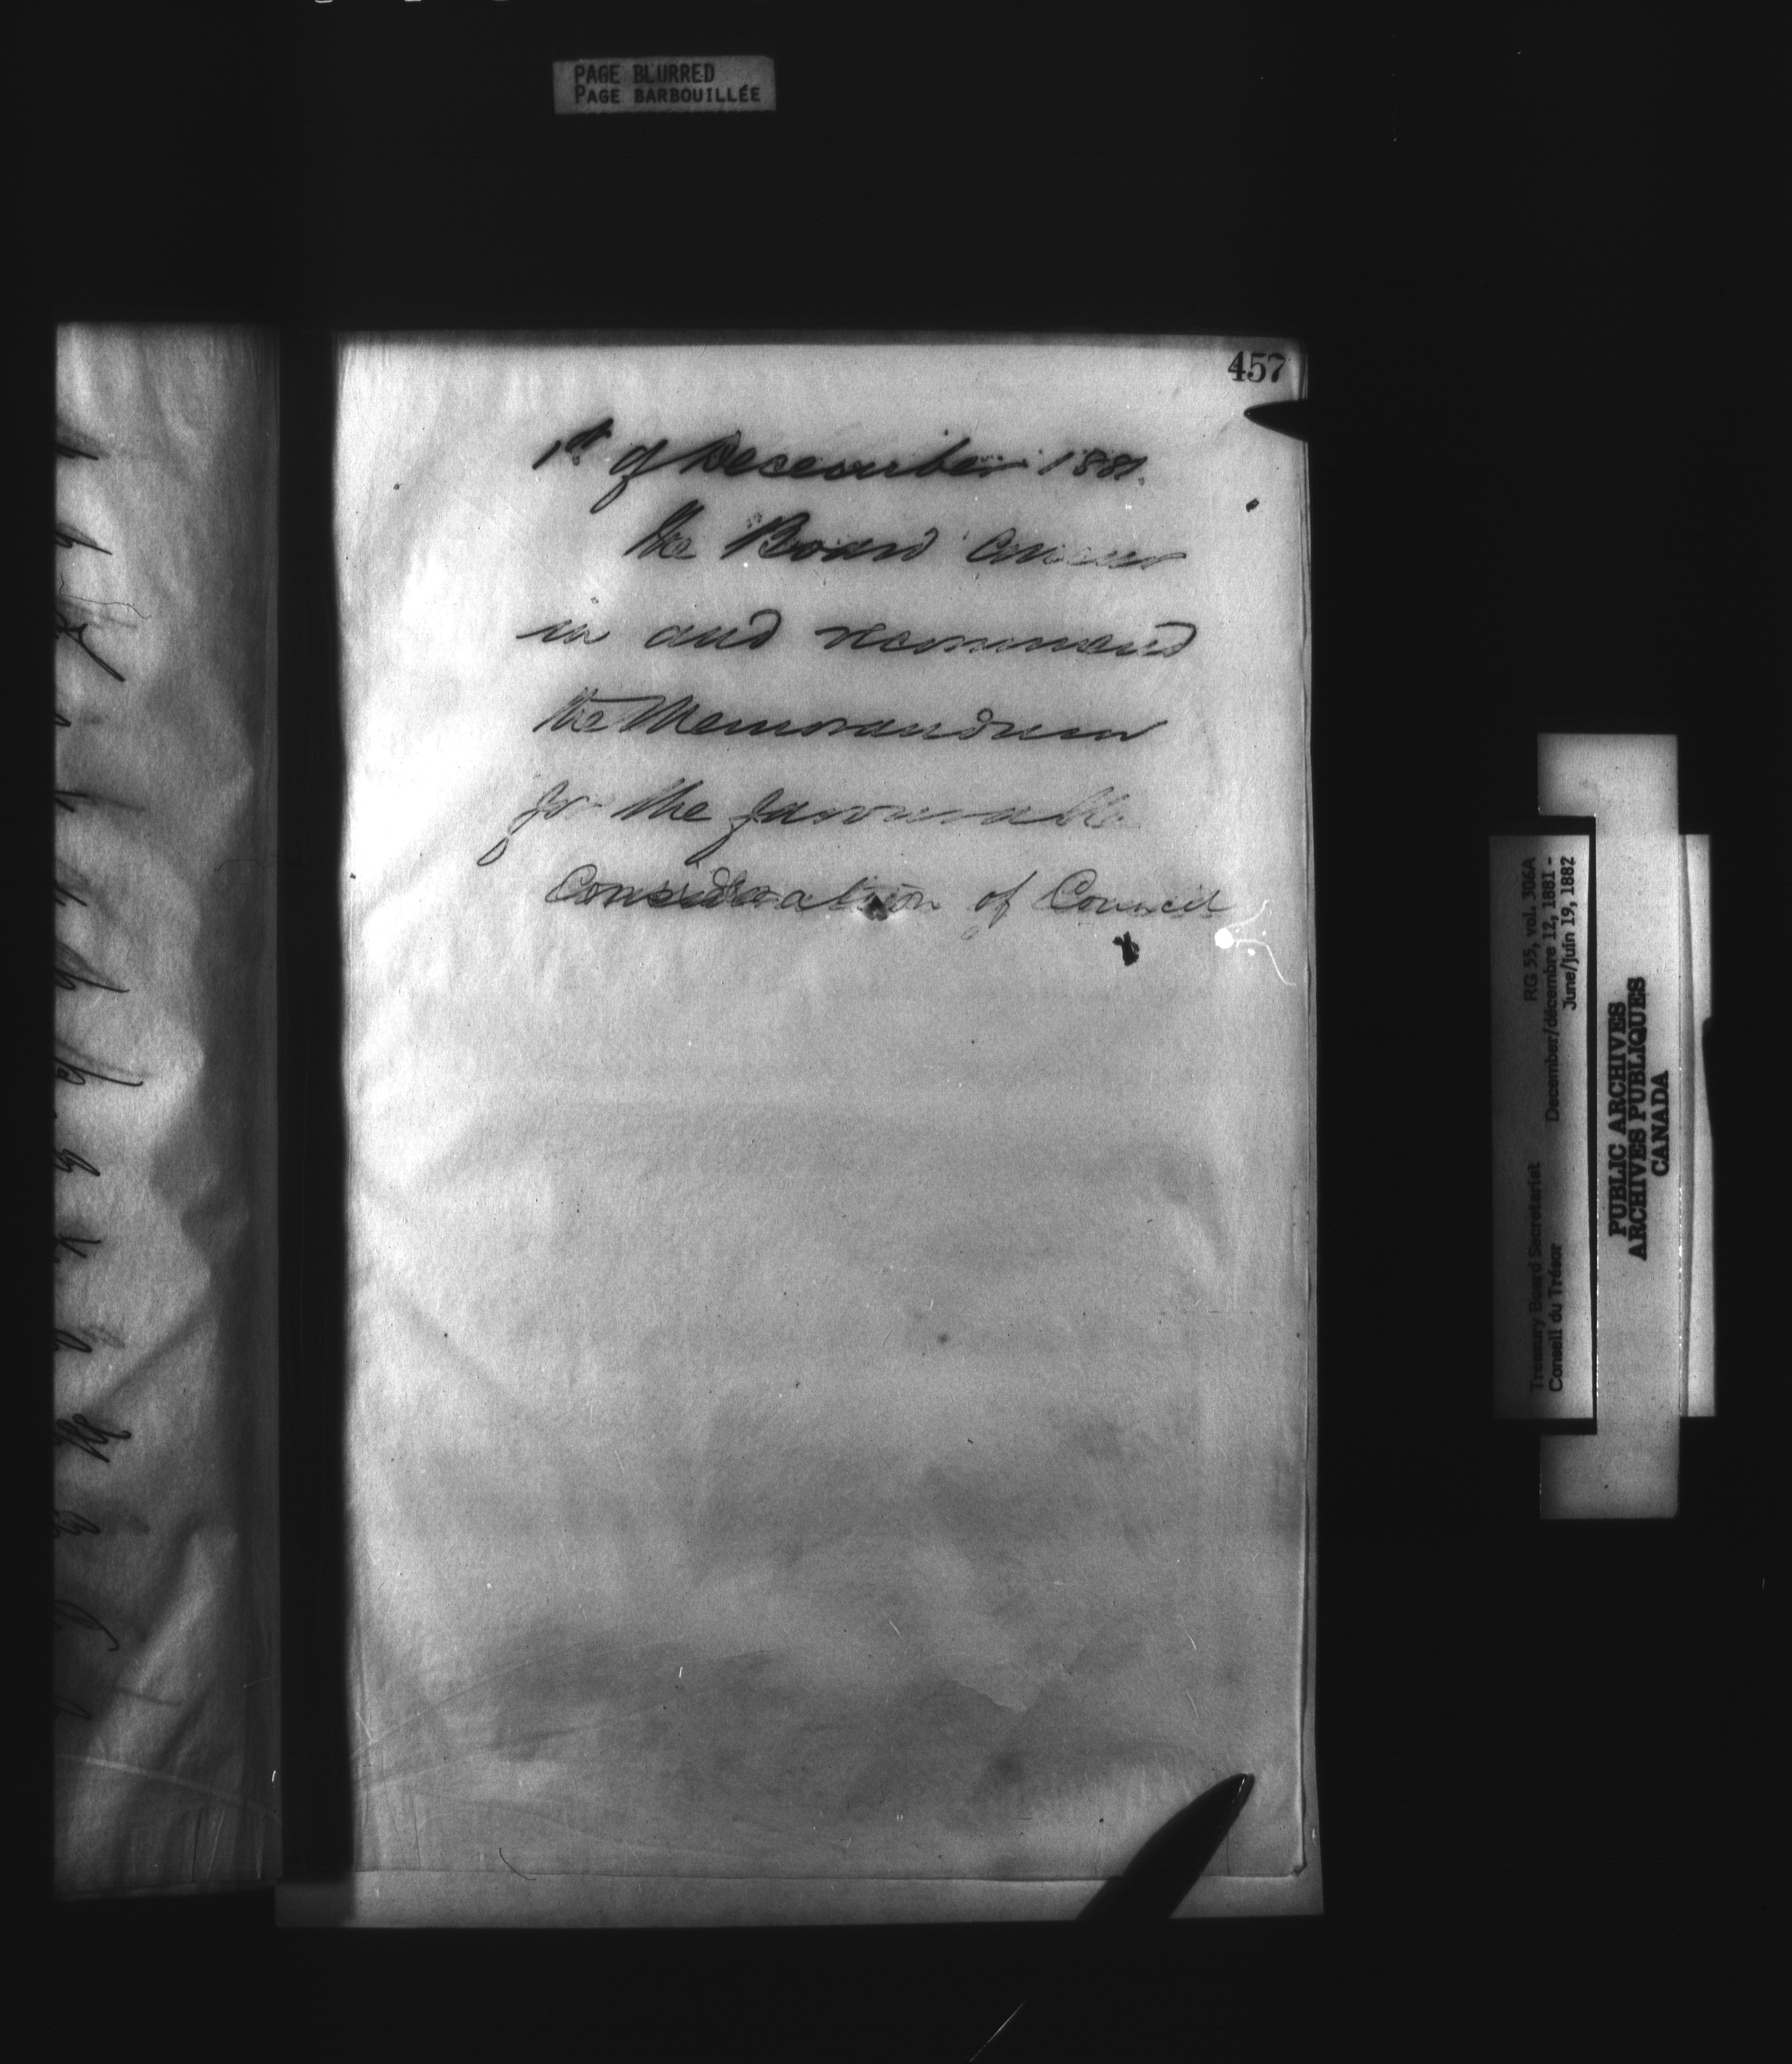 PAGE BLURRED
PAGE BARBOUILLÉE
457
1st of December 1881.
the Board concur
in and recommend
the Memorandum
for the favourable
Consideration of Council
Treasury Board Secretariat RG 55, vol. 306A
Conseil du Trésor December/décembre 12, 1881 -
June/juin 19, 1882
PUBLIC ARCHIVES
ARCHIVES PUBLIQUES
CANADA